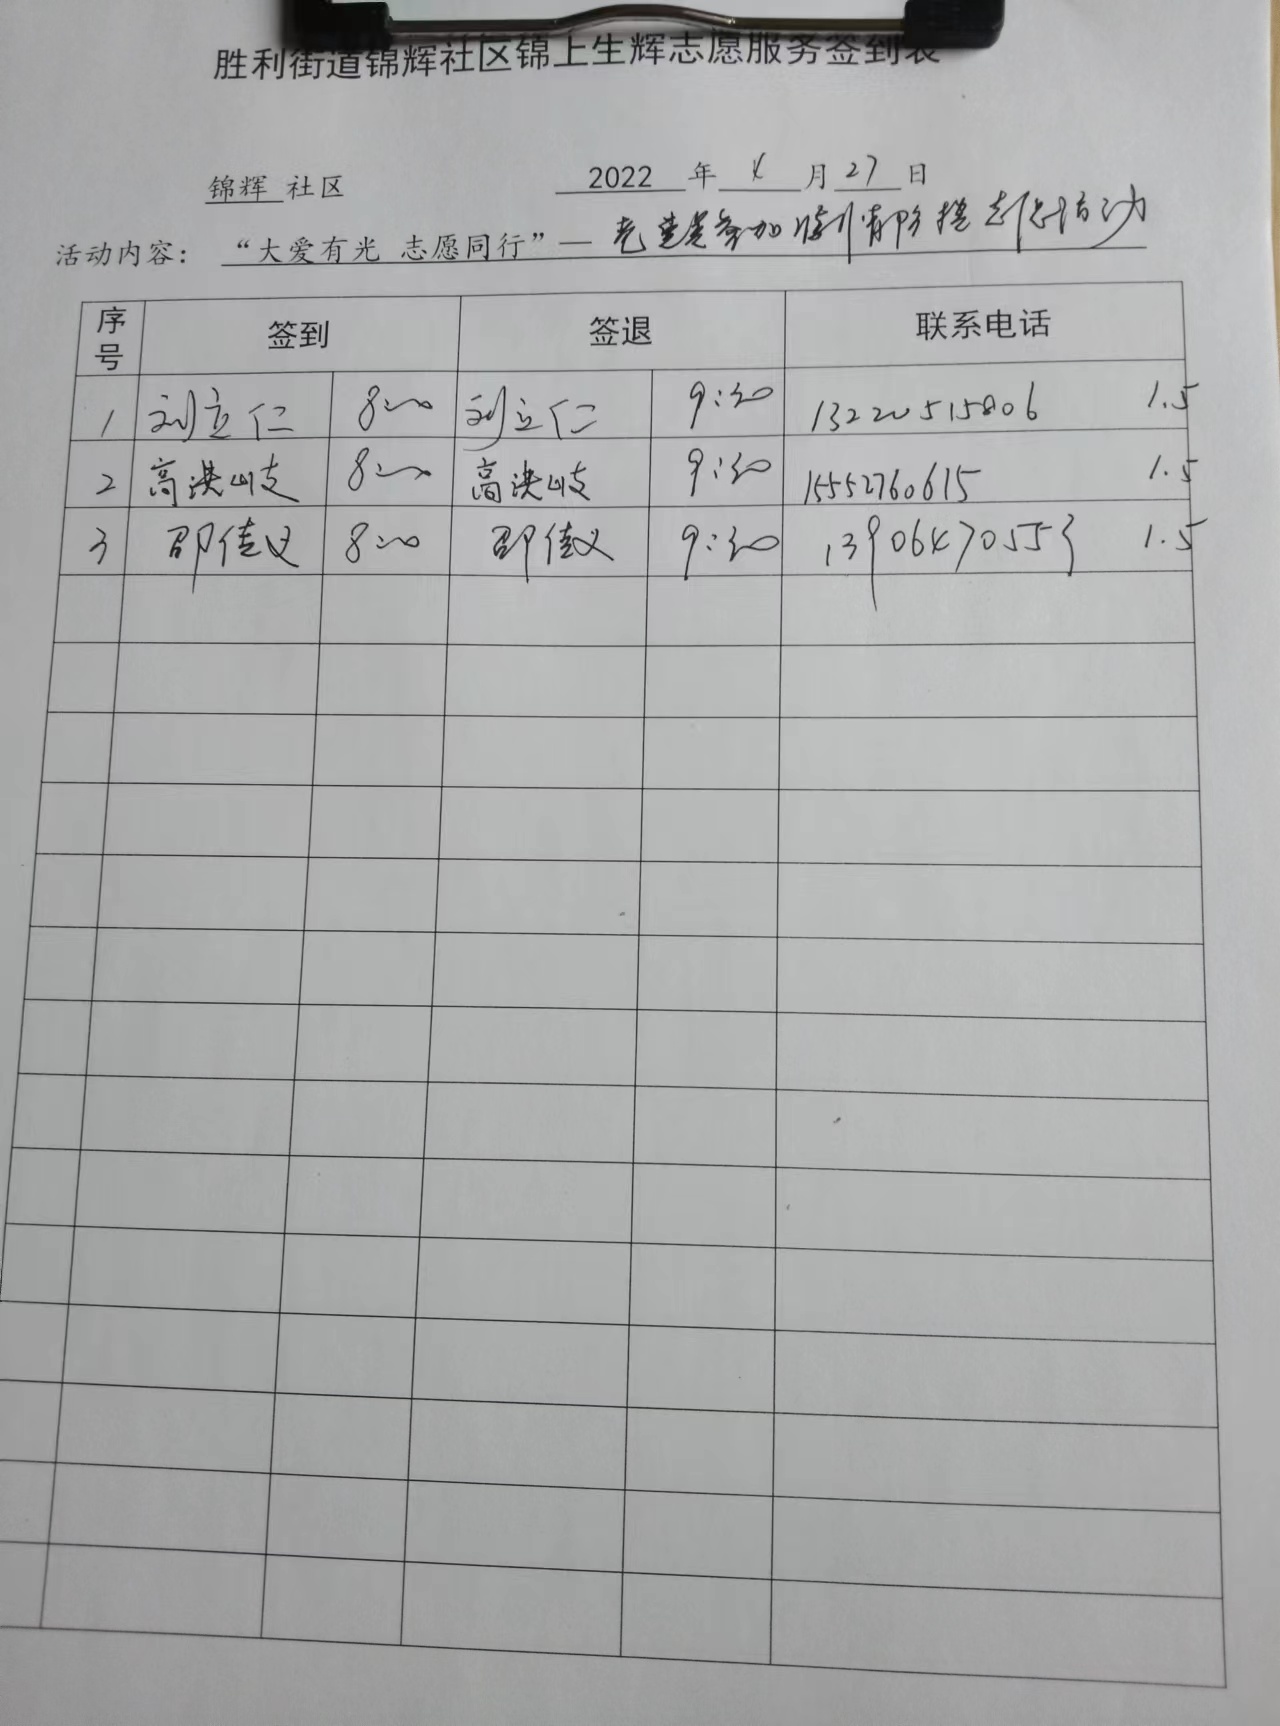 胜利街道锦辉社区锦上生辉志愿服务签到表
锦辉 社区 2022 年 4 月 27 日
活动内容： “大爱有光 志愿同行”— 党员参加 疫情防控志愿活动
序号 签到 签退 联系电话
1 刘立仁 8:00 刘立仁 9:30 13220515806 1.5
2 高洪岐 8:00 高洪岐 9:30 15552760615 1.5
3 邵佳义 8:00 邵佳义 9:30 13906470553 1.5